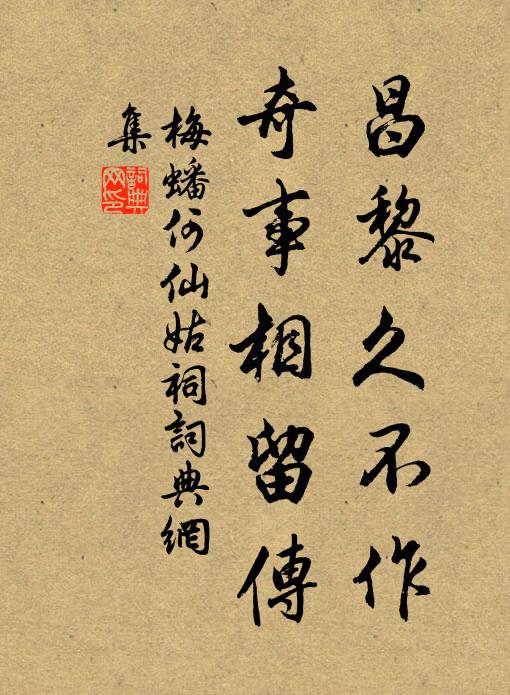 昌黎久不作
奇事相留傳
梅蟠何仙姑祠詞典網
集
詞典
网印